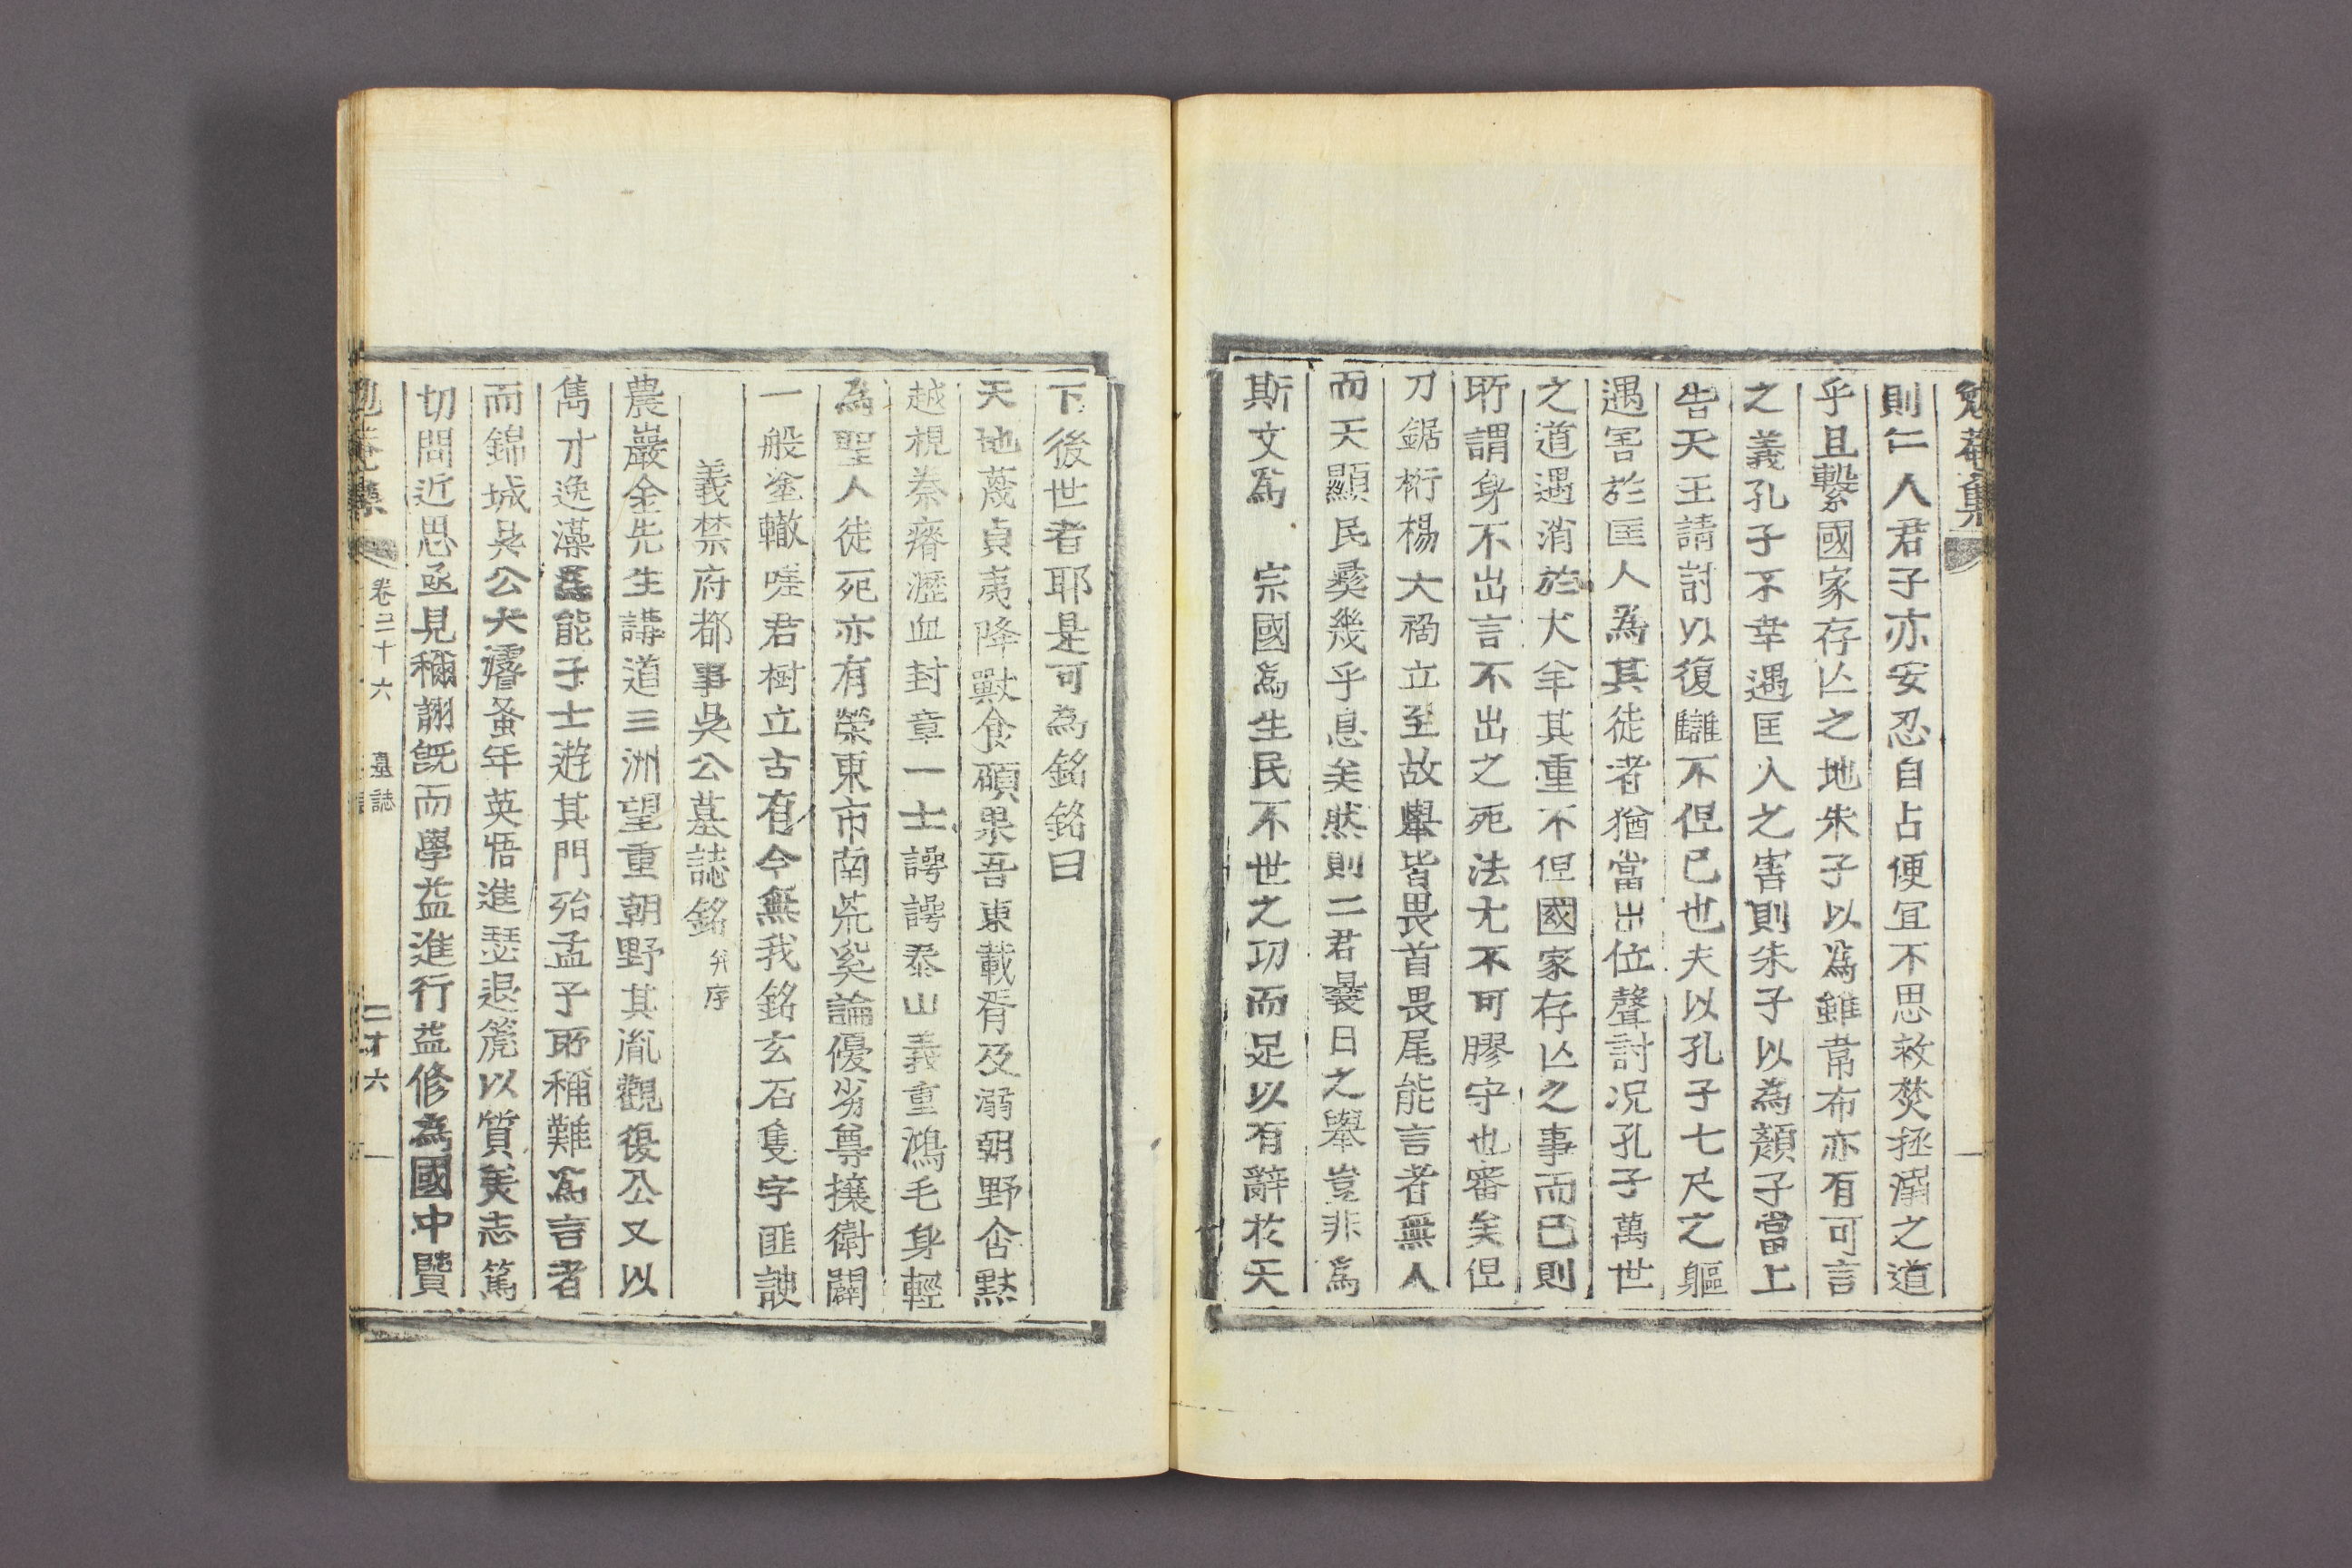 勉菴集
則仁人君子亦安忍自占便宜不思救焚拯溺之道
乎且繫國家存亾之地朱子以爲雖韋布亦有可言
之義孔子不幸遇匡人之害則朱子以為顏子當上
告天王請討以復讎不但已也夫以孔子七尺之軀
遇害於匡人爲其徒者猶當出位聲討况孔子萬世
之道遇消於犬羊其重不但國家存亾之事而已則
所謂身不出言不出之死法尤不可膠守也審矣但
刀鋸桁楊大禍立至故擧皆畏首畏尾能言者無人
而天顯民彛幾乎息矣然則二君曩日之擧豈非爲
斯文爲 宗國爲生民不世之功而足以有辭於天
下後世者耶是可為銘銘曰
天地蔑貞夷降獸食碩果吾東載胥及溺朝野含默
越視秦瘠瀝血封章一士諤諤泰山義重鴻毛身輕
為聖人徒死亦有榮東市南荒奚論優劣尊攘衛闢
一般塗轍嗟君樹立古有今無我銘玄石隻字匪諛
義禁府都事吳公墓誌銘 并序
農巖金先生講道三洲望重朝野其胤觀復公又以
雋才逸藻爲能子士遊其門殆孟子所稱難爲言者
而錦城吳公大濬蚤年英悟進瑟退篪以質美志篤
切問近思亟見稱詡旣而學益進行益修為國中賢
勉菴集 卷之二十六 墓誌 二十六